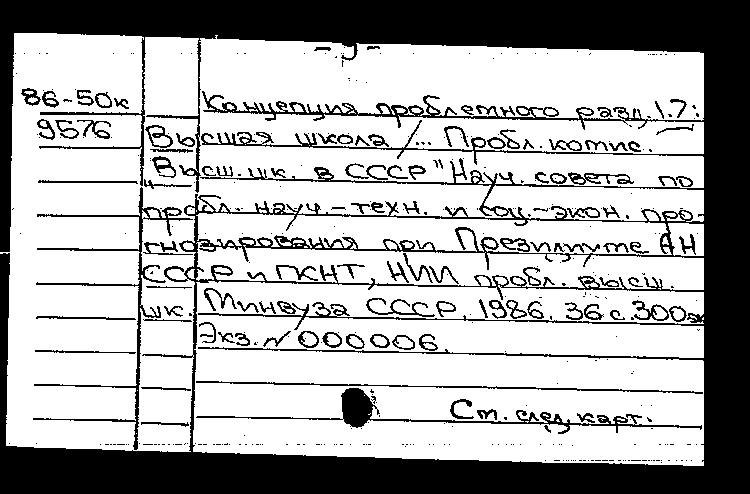 - 9 -
86-50к Концепция проблемного разд. 1.7:
9576 Высшая школа /... Пробл. комис.
"Высш. шк. в СССР" Науч. совета по
пробл. науч.-техн. и соц.-экон. про-
гнозирования при Президиуме АН
СССР и ГКНТ, НИИ пробл. высш.
шк. Минвуза СССР, 1986. 36 с. 300 эк
Экз. № 000006.
См. след. карт.